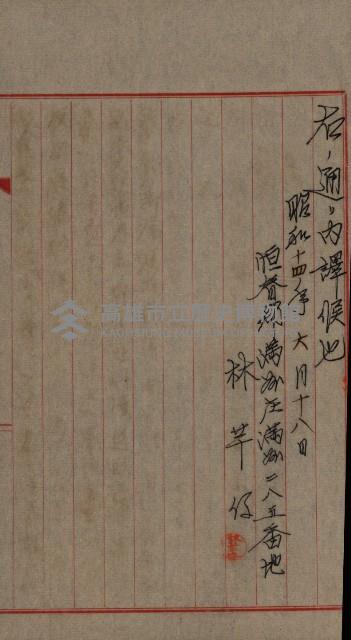 右ノ通リ内譯候也
昭和十四年六月十八日
恒春郡滿州庄滿州二八五番地
林芋仔
高雄市立歷史博物館